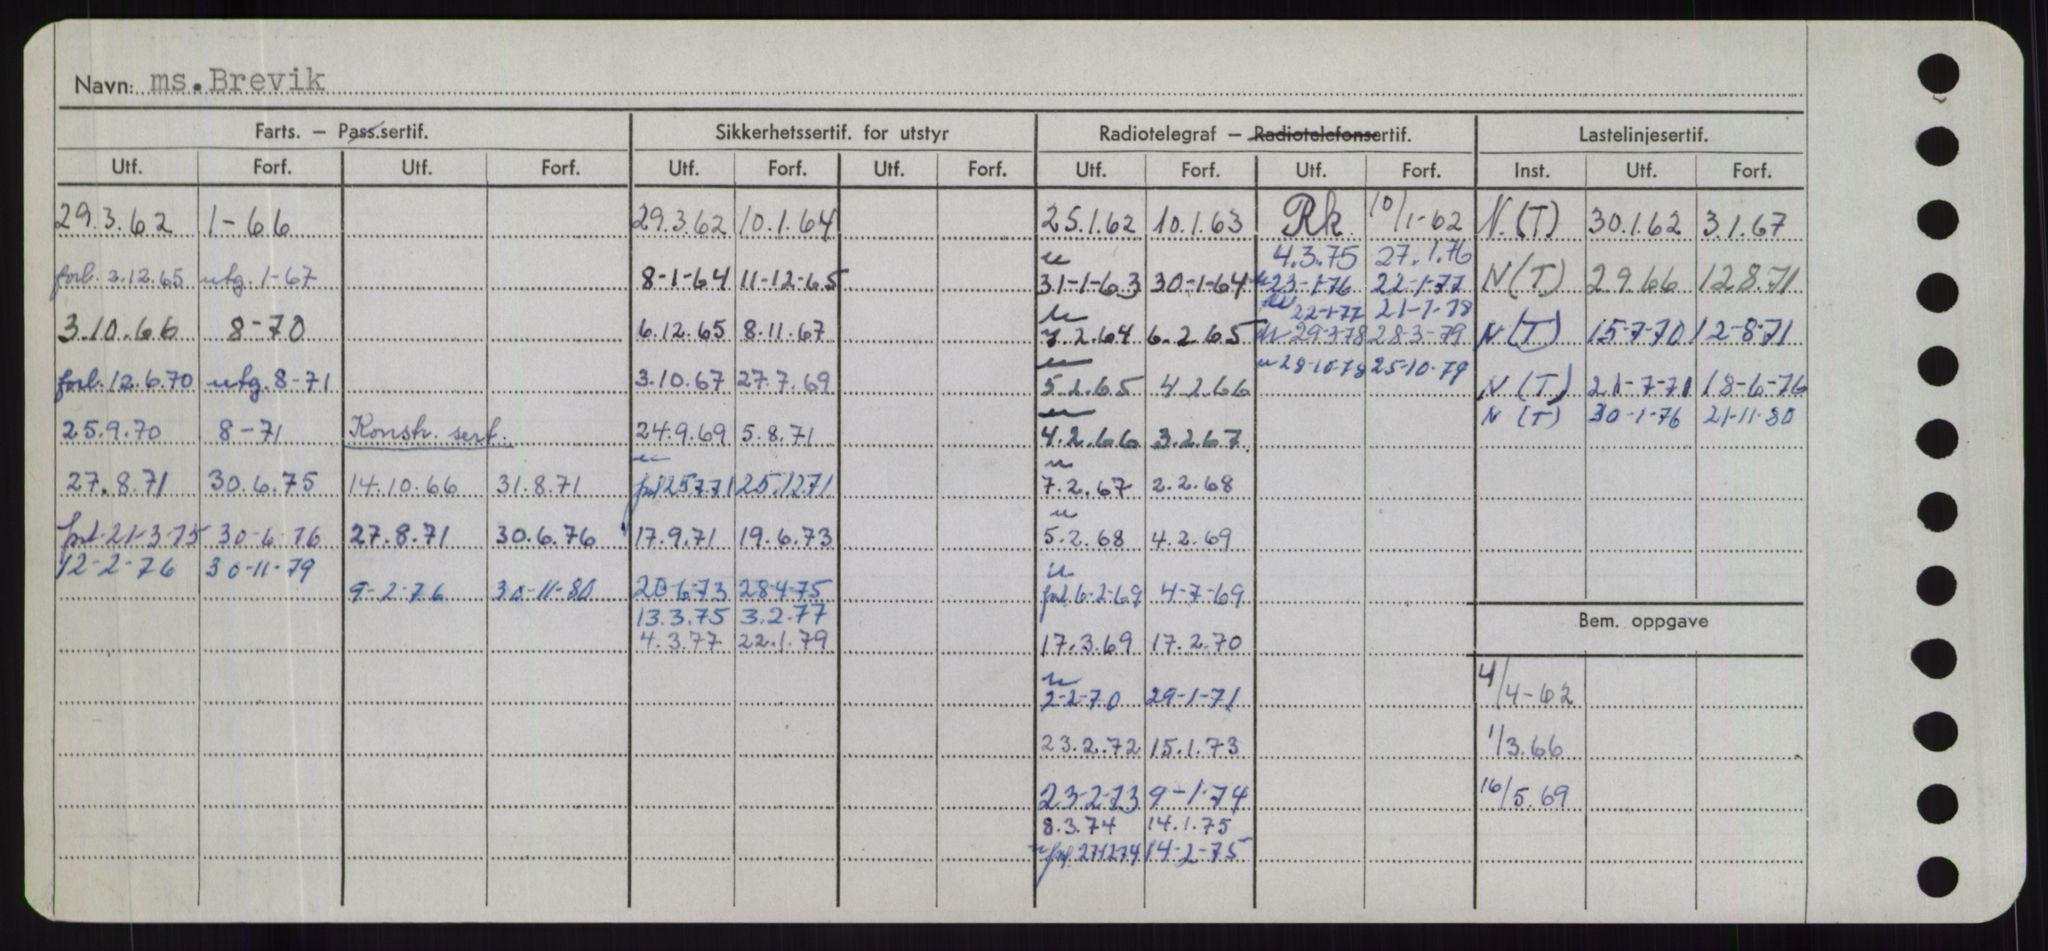 Navn: ms.Brevik
Farts. – Pass.sertif. Sikkerhetssertif. for utstyr Radiotelegraf – Radiotelefonsertif. Lastelinjesertif.
Utf. Forf. Utf. Forf. Utf. Forf. Utf. Forf. Utf. Forf. Utf. Forf. Inst. Utf. Forf.
29.3.62 1-66 29.3.62 10.1.64 25.1.62 10.1.63 Rk. 10/1-62 N.(T) 30.1.62 3.1.67
4.3.75 27.1.76
forl. 3.12.65 utg. 1-67 8-1-64 11-12-65 31-1-63 30-1-64 23-1-76 22-1-77 N(T) 2.9.66 12.8.71
22-1-77 21-1-78
3.10.66 8-70 6.12.65 8.11.67 7.2.64 6.2.65 29-3-78 28-3-79 N(T) 15-7-70 12-8-71
28-10-78 25-10-79
forl. 12.6.70 utg. 8-71 3.10.67 27.7.69 5.2.65 4.2.66 N(T) 21-7-71 18-6-76
25.9.70 8-71 Konstr. sert. 24.9.69 5.8.71 4.2.66 3.2.67 N (T) 30-1-76 21-11-80
27.8.71 30.6.75 14.10.66 31.8.71 forl 25771 25.1271 7.2.67 2.2.68
forl. 21-3-75 30-6-76 27.8.71 30.6.76 17.9.71 19.6.73 5.2.68 4.2.69
12-2-76 30-11-79
9-2-76 30-11-80 20-6-73 28-4-75 forl. 6-2-69 4-7-69
13.3.75 3.2.77 Bem. oppgave
4.3.77 22.1.79 17.3.69 17.2.70
2-2-70 29-1-71 4/4-62
23.2.72 15.1.73 1/3.66
23-2-73 9-1-74 16/5.69
8.3.74 14.1.75
forl. 271274 14-2-75